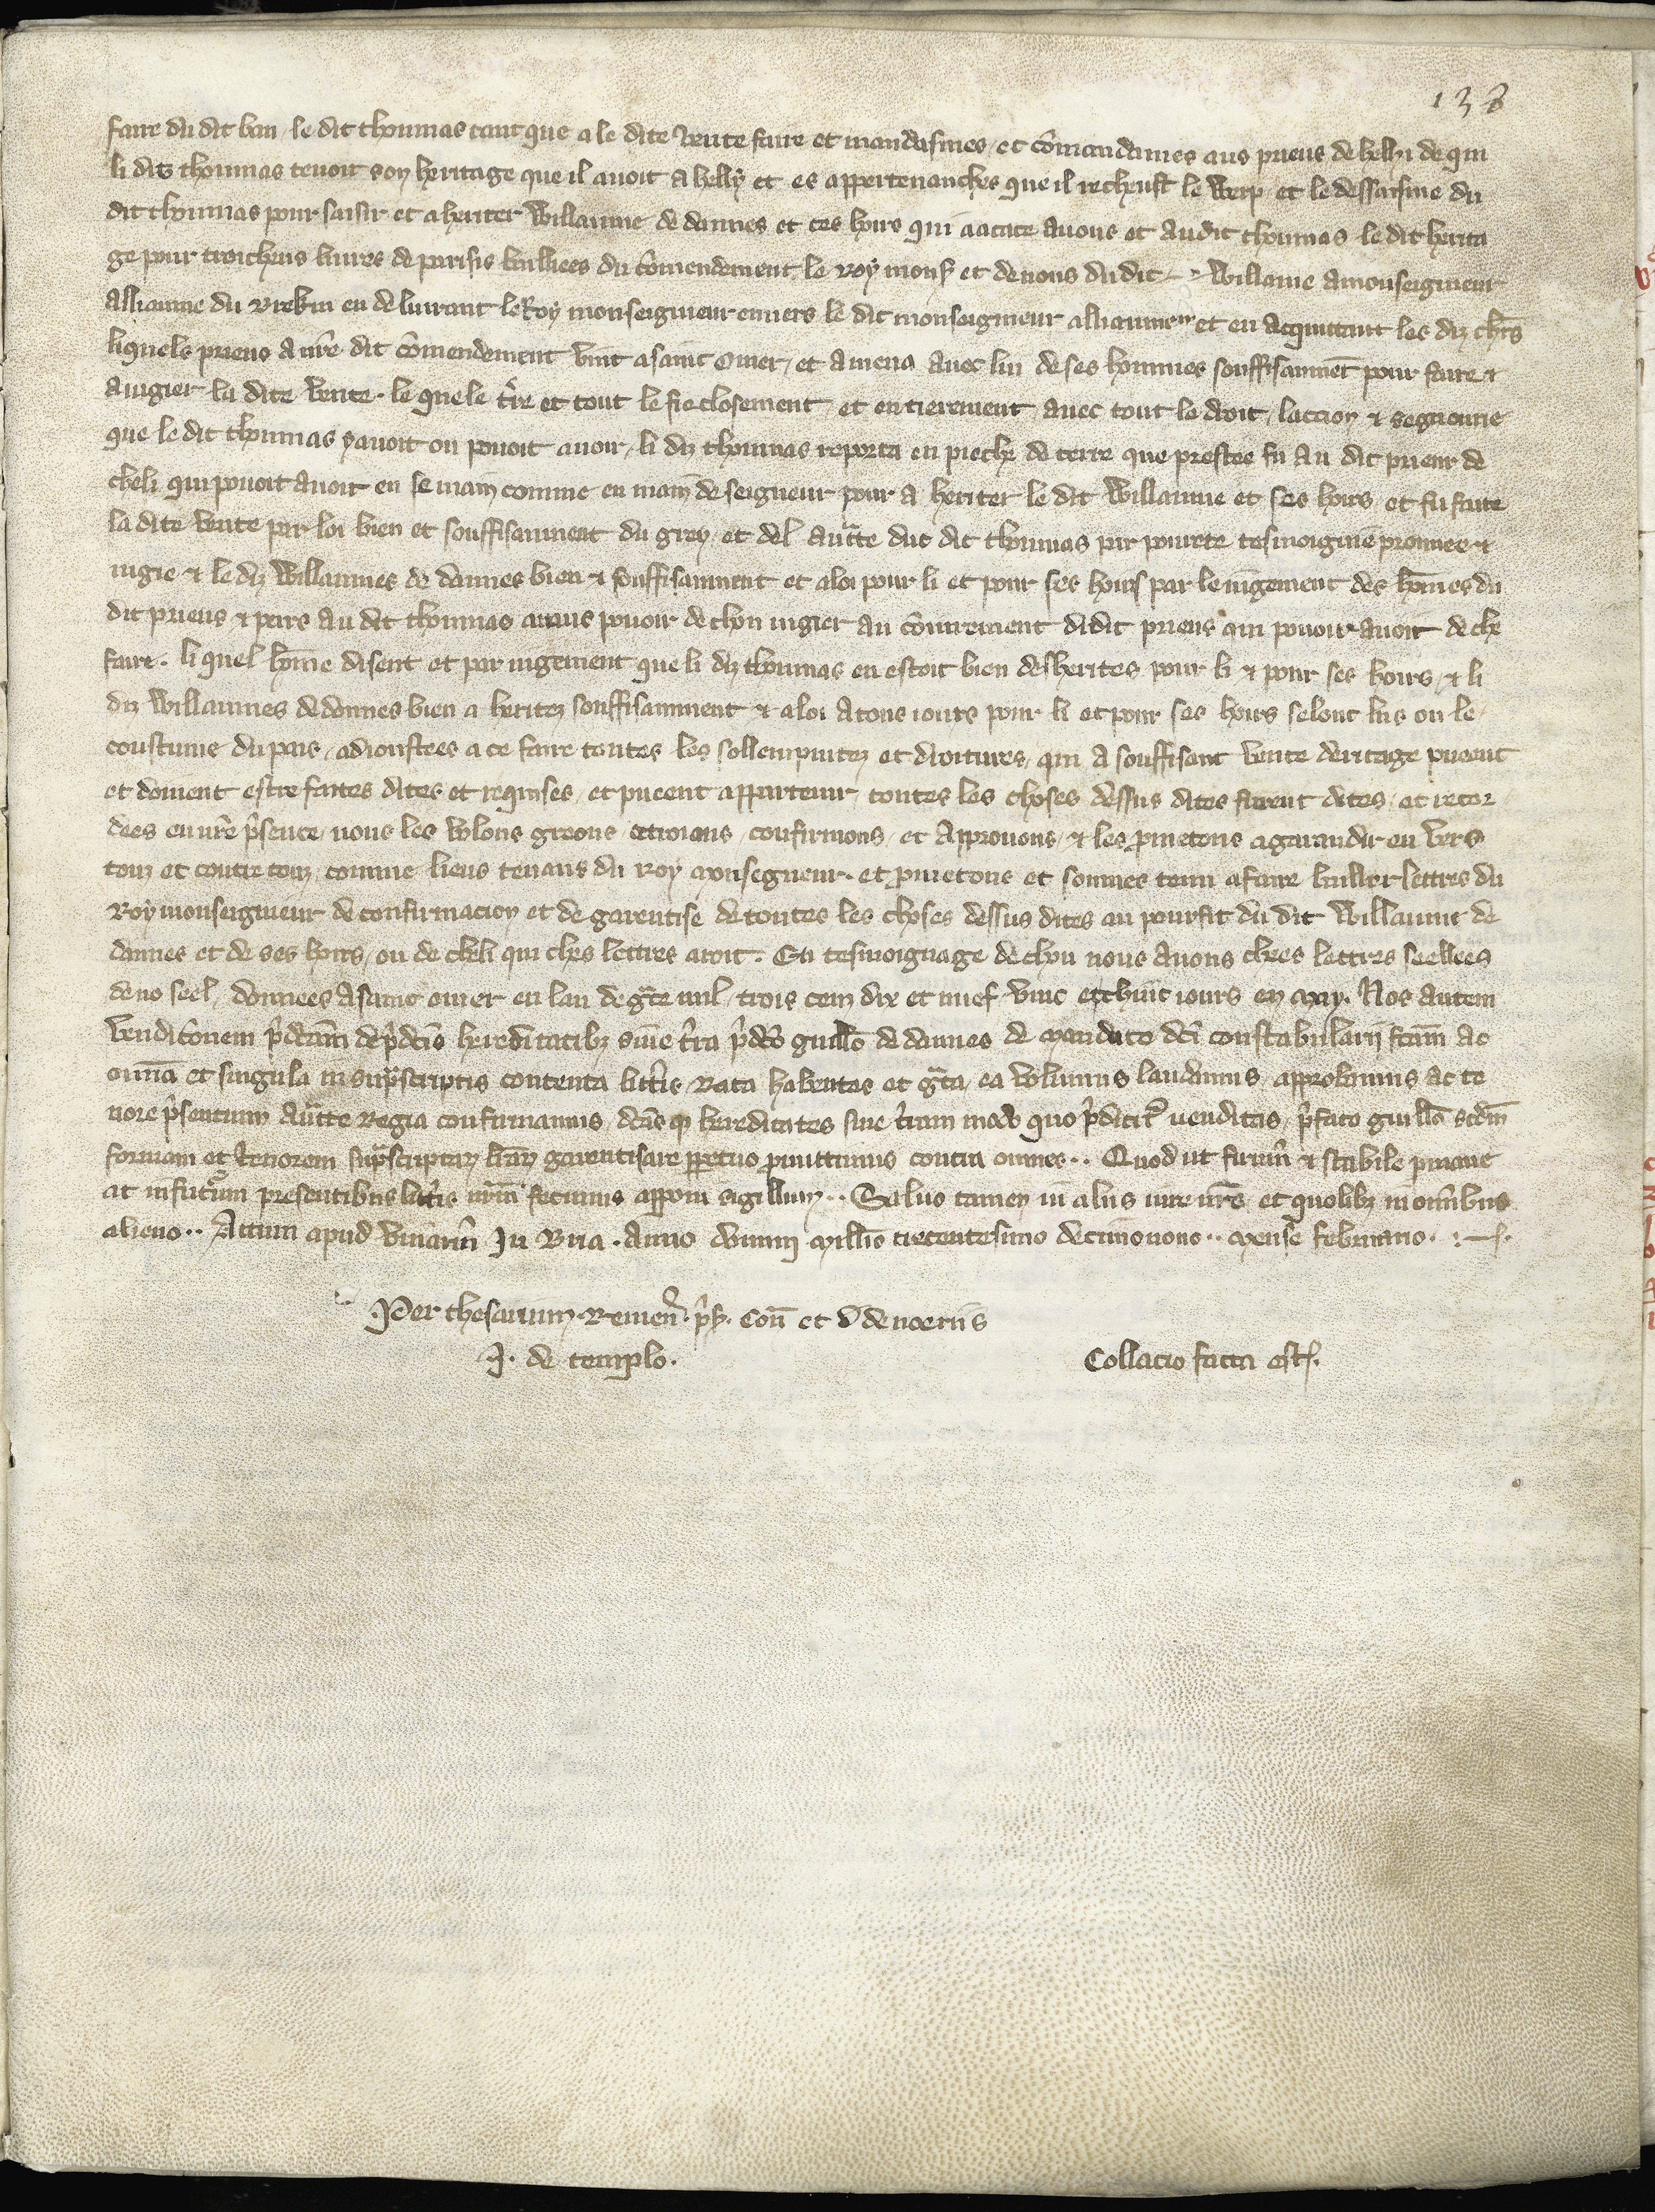 138
faire du dit ban le dit thoumas tant que a le dite vente faire et mandasmes et comandames aus prieus de helli de qui
li dits thoumas tenoit son heritage que il auoit a helly et es appertenanches que il recheust le werp et le dessaisine du
dit thoumas pour saisir et aheriter Willaume de dannes et ces hoirs qui aacate auons et audit thoumas le dit herita
ge pour troichens liures de parisis bailliees du comendement le roy mons et de nous du dit Willame a monseigneur
alliaume du brekin en deliurant le Roy monseigneur enuers le dit monseigneur alliaume et en acquittant les diz
liquels prieus a nre dit comendement vint a saint Omer et amena auec lui de ses hommes souffisanment pour faire et
a iugier la dite vente le quele tre et tout le fie closement et entierement auec tout le droit laccion et segnourie
que le dit thoumas y auoit ou pouoit auoir li diz thoumas reporta en pieche de terre que prestee fu au dit prieur de
cheli qui pouoit auoir en se main comme en main de seigneur pour a heriter le dit Willaume et ses hoirs et fu faite
la dite vente par loi bien et souffisanment du grey et del auttte dut dit thoumas par pourete tesmoignie prouuee et
iugie et le diz Willaumes de dannes bien et souffisanment et a loi pour li et pour ses hoirs par le iugement des homes du
dit prieus et pers au dit thoumas pouoir de chou iugier au coniurement didit prieus qui pouoir auoit de che
faire. li quel home disent et par iugement que li diz thoumas en estoit bien desherites pour li et pour ses hoirs, et li
diz Willaumes de dannes bien a heritez souffisanment et a loi a tous iours pour li et pour ses hoirs selonc lus ou le
coustume du pais, adioustees a ce faire toutes les sollempnitez et droitures, qui a souffisant vente deritage pueent
et doiuent estre faites dites et requises, et pueent appartenir toutes les choses dessus dites furent dites, et recor
dees en nre psence, nous les volons greons ottroions confirmons, et approuons, et les pmetons a garandir en vers
touz et contre touz, comme lieus tenans du roy monsegneur. et pmetons et sommes tenu a faire baillier lettres du
Roy monseigneur de confirmacion et de garentise de toutes les choses dessus dites au pourfit du dit Willaume de
dannes et de ses hoirs, ou de cheli qui ches lettres aroit. En tesmoignage de chou nous auons chees lettres seellees
de no seel, donnees a saint omer en lan de gce mil, trois cenz dix et nuef vint et huit iours en may. Nos autem
venditonem pdcam de pdcis hereditatibz siue tra pdco guillo de dannes de mandato dci constabularij fcam ac
omnia et singula in supscriptis contenta litis rata habentes et gta, ea volumus laudamus, approbamus ac te
nore psentium auctte regia confirmamus, dcas q hereditates siue tram modo quo pdicit venditas, pfato guillo scdm
formam et tenorem supscriptaz lraz garentisare ppetuo pmittimus contra omnes.. Quod ut firmu et stabile pmane
at in futurum presentibus litis nrm fecimus apponi sigillum.. Saluo tamen in aliis iure nro et quolibz in omibus
alieno.. Actum apud viuariu In Bria. Anno domini millo trecentesimo decimonono.. mense februario.
Per thesaurium. Remen. psb. Con et D de noeriis
J. de templo.
Collacio facta est.